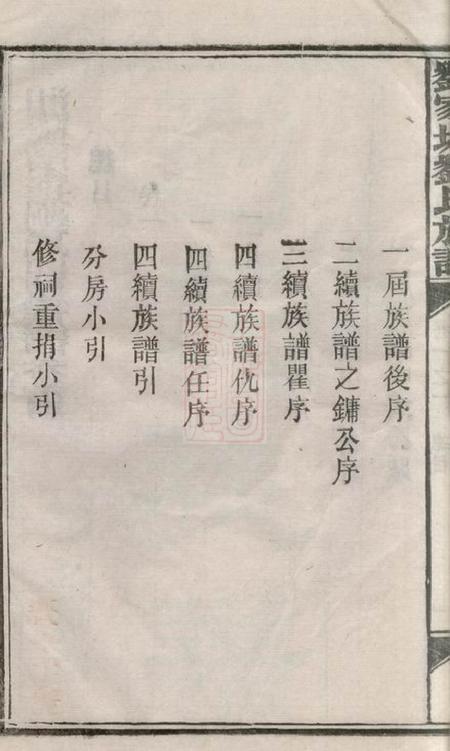 劉家坊劉氏族譜
一屆族譜後序
二續族譜之鏞公序
三續族譜瞿序
四續族譜仇序
四續族譜任序
四續族譜引
分房小引
修祠重捐小引